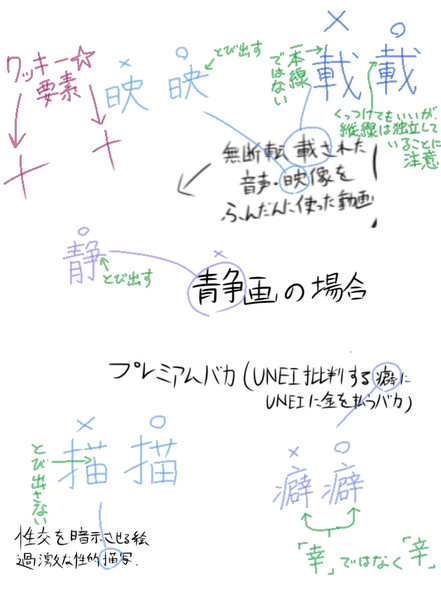 × ○
一本線
ではない
載 載
× ○
映 映
とび出す
クッキー☆
要素
くっつけてもいいが、
縦線は独立して
いることに
注意
無断転載された
音声・映像を
ふんだんに使った動画
○
静
とび出す
×
静画の場合
プレミアムバカ(UNEI批判する癖に
UNEIに金を払うバカ)
× ○
描 描
とび出さない
× ○
癖 癖
性交を暗示させる絵
過激な性的描写.
「幸」ではなく「辛」